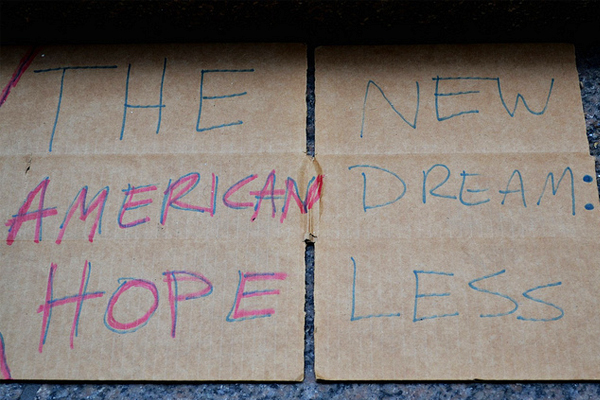 THE NEW
AMERICAN DREAM:
HOPE LESS